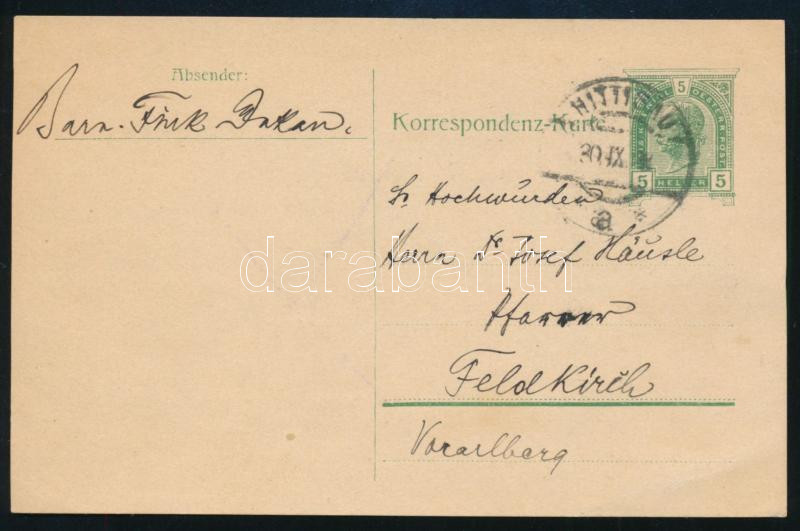 Absender:
Barn. Fink Dekan.
Korrespondenz-Karte
HITTISAU
30 IX
a
5
5 HELLER 5
Sr Hochwürden
Herrn Dr Josef Häusle
Pfarrer
Feldkirch
Vorarlberg
darabanth